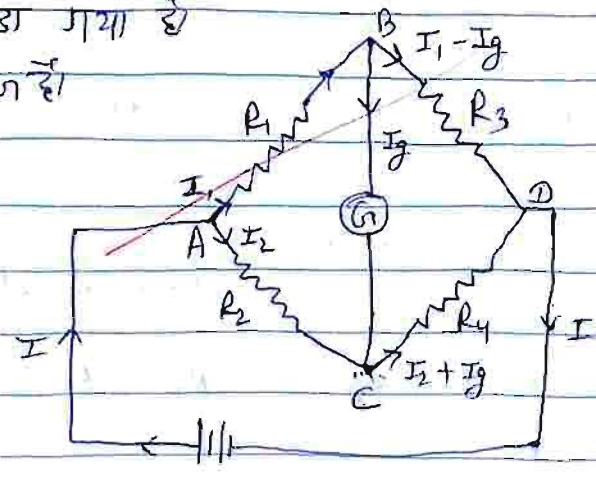 गया है
है।
B
I₁ - Ig
R₁
R₃
Ig
I₁
G
D
A
I₂
R₂
R₄
I
I
I₂ + Ig
C